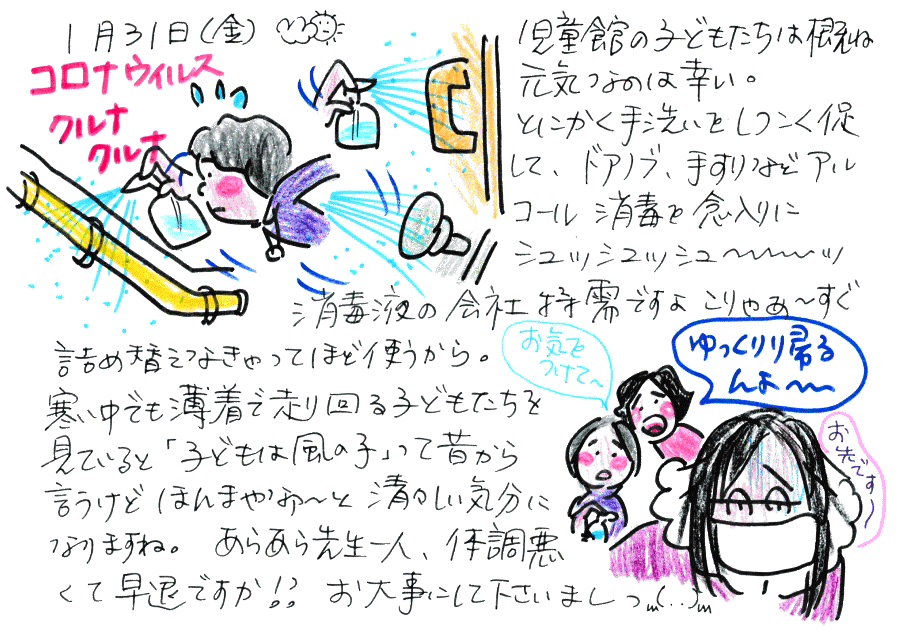 1月31日(金)
コロナウィルス
クルナ
クルナ
児童館の子どもたちは概ね
元気なのは幸い。
とにかく手洗いをしつこく促
して、ドアノブ、手すりなどアル
コール消毒を念入りに
シュッシュッシュ〜〜〜ッ
消毒液の会社特需ですよ こりゃあ〜すぐ
詰め替えなきゃってほど使うから。
お気を
つけて〜
ゆっくりり帰る
んよ〜〜
お先です〜
寒い中でも薄着で走り回る子どもたちを
見ていると「子どもは風の子」って昔から
言うけど ほんまやわ〜と 清々しい気分に
なりますね。 あらあら先生一人、体調悪
くて早退ですか!? お大事にして下さいましっm(..)m